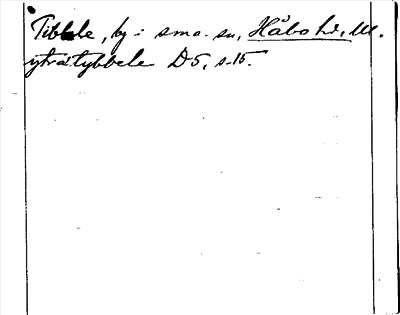 Tibble, by i sma. sn, Håbo hd, Ul.
ytratybbele D 5, s. 15.